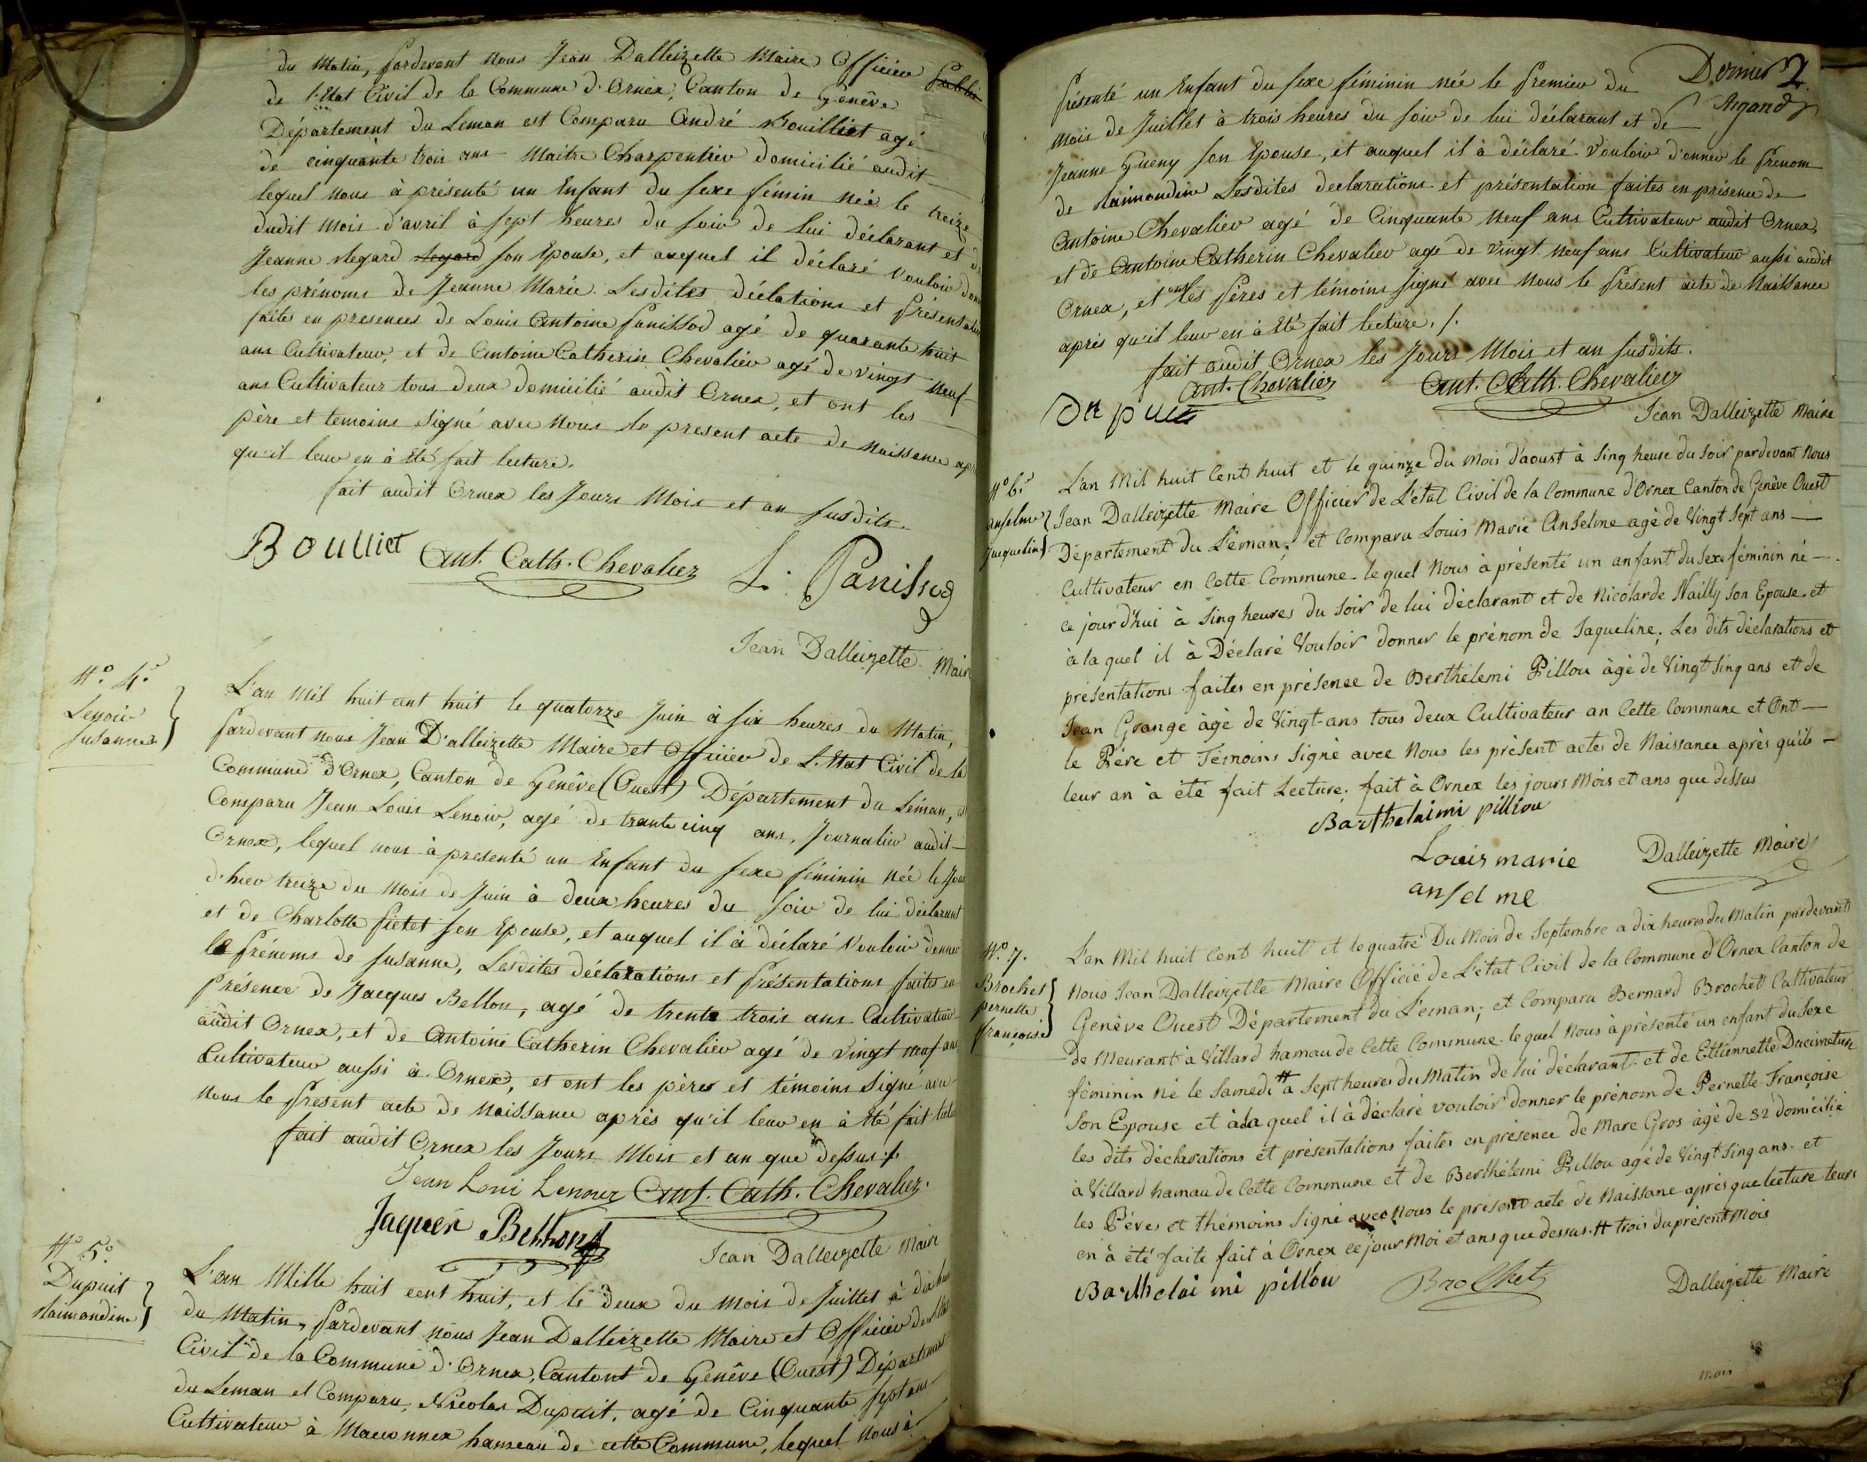 du Matin, Pardevant nous Jean Dalleizette Maire Officier Public
de l'Etat Civil de la Commune d'Ornex, Canton de Genêve
Département du Leman est Comparu André Bouilliet agé
de cinquante trois ans Maitre Charpentier domicilié audit
lequel nous à présenté un Enfant du sexe fémin née le treize
dudit mois d'avril à sept heures du soir de lui déclarant et de
Jeanne Regard son Epouse, et auquel il déclaré Vouloir
les prénoms de Jeanne Marie. Lesdites déclations et présentation
faites en presences de Louis Antoine Panissod agé de quarante huit
ans Cultivateur, et de Antoine Catherin Chevalier agé de vingt neuf
ans Cultivateur tous deux domicilié audit Ornex, et ont les
père et temoins signé avec nous le present acte de Naissance
qu'il leur en à été fait lecture.
fait audit Ornex les Jours Mois et an susdits.
Boulliet Ant. Cath. Chevalier L. Panissod
Jean Dalleizette Maire
N.º 4.º
Lenoir
Susanne
L'an Mil huit cent huit le quatorze Juin à six heures du Matin,
Pardevant nous Jean D'alleizette Maire et Officier de L'Etat Civil de la
Commune d'Ornex, Canton de Genêve (Ouest) Département du Léman,
Comparu Jean Louis Lenoir, agé de trante cinq ans, Journalier audit
Ornex, lequel nous à presenté un Enfant du sexe féminin née le Jour
d'hier treize du Mois de Juin à deux heures du soir de lui déclarant
et de Charlotte son Epouse, et auquel il à déclaré Vouloir donner
le Prénoms de Susanne, Lesdites déclarations et Présentations faites en
Présence de Jacques Bellon, agé de trente trois ans Cultivateur
audit Ornex, et de Antoine Catherin Chevalier agé de vingt neuf ans
Cultivateur aussi à Ornex, et ont les pères et témoins Signe avec
nous le Present acte de Naissance après qu'il leur en à été fait
fait audit Ornex les Jours Mois et an que dessus
Jean Loui Lenoir Ant. Cath. Chevalier.
Jaques Bellon
Jean Dalleizette Maire
N.º 5.º
Dupuit
Raimondine
L'an Mille huit cent huit, et le deux du Mois de Juillet à dix
du Matin, Pardevant nous Jean Dalleizette Maire et Officier de
Civil de la Commune d'Ornex, Cantont de Genêve (Ouest) Département
du Leman et Comparu, Nicolas Dupuit, agé de Cinquante sept ans
Cultivateur à Maconnex hameau de cette Commune, lequel nous à
Dernier 2.
Regard
Présenté un Enfant du sexe féminin née le Premier du
mois de Juillet à trois heures du soir de lui déclarant et de
Jeanne Gueny son Epouse, et auquel il à déclaré Vouloir donner le Prenom
de Raimondine Lesdites declarations et présentation faites en présence de
Antoine Chevalier agé de Cinquante neuf ans Cultivateur audit Ornex,
et de Antoine Catherin Chevalier agé de vingt neuf ans Cultivateur aussi audit
Ornex, et ont les Pères et témoins signé avec nous le Present acte de Naissance
après qu'il leur en à été fait lecture./.
fait audit Ornex les Jours Mois et an susdits.
Ant. Chevalier Ant. Cath. Chevalier
Du puis
Jean Dalleizette Maire
N.º 6.º
Anselme
Jaqueline
L'an Mil huit Cent huit et le quinze du Mois d'aoust à Sinq heure du Soir pardevant Nous
Jean Dalleizette Maire Officier de L'état Civil de la Commune d'Ornex Canton de Genêve Ouest
Département du Léman; et Comparu Louis Marie Anselme agè de Vingt Sept ans
Cultivateur en Cette Commune. lequel Nous à présenté un anfant du Sexe féminin né
ce jour d'hui à Sinq heures du Soir de lui déclarant et de Nicolarde Nailly Son Epouse. et
à la quel il à Déclaré Vouloir donner le prénom de Jaqueline; Les dits déclarations et
présentations faites en présence de Berthélemi Pillou âgè de Vingt Sinq ans et de
Jean Grange âgè de Vingt-ans tous deux Cultivateur an Cette Commune et Ont
le Pére et Témoins Signè avec Nous les présent actes de Naissance après qu'ils
leur an à été fait Lecture. fait à Ornex les jours Mois et ans que dessus
Barthelaimi pilliou
Louis marie
anselme
Dalleizette Maire
N.º 7.
Brochet
Pernette
françoise
L'an Mil huit Cent huit et le quatre Du Mois de Septembre a dix heures du Matin par devant
Nous Jean Dalleizette Maire Officié de L'état Civil de la Commune d'Ornex Canton de
Genêve Ouest Département du Léman; et Comparu Bernard Brochet Cultivateur
de Meurant à Villard hamau de Cette Commune. lequel Nous à présenté un enfant du Sexe
féminin Né le Samedi # a Sept heures du Matin de lui déclarant et de Ettiennette
Son Epouse et à la quel il à déclaré vouloir donner le prénom de Pernette Françoise
les dits déclarations et présentations faites en présence de Marc Gros agè de 32 domicilié
à Villard hamau de Cette Commune et de Berthélemi Pillou agè de Vingt Sinq ans. et
les Péres et thémoins Signé avec Nous le présent acte de Naissane après que lecture leurs
en à été faite fait à Ornex ce jour Moi et ans que dessus. # trois du présent Mois
Barthelaimi pillou Brochet Dalleizette Maire